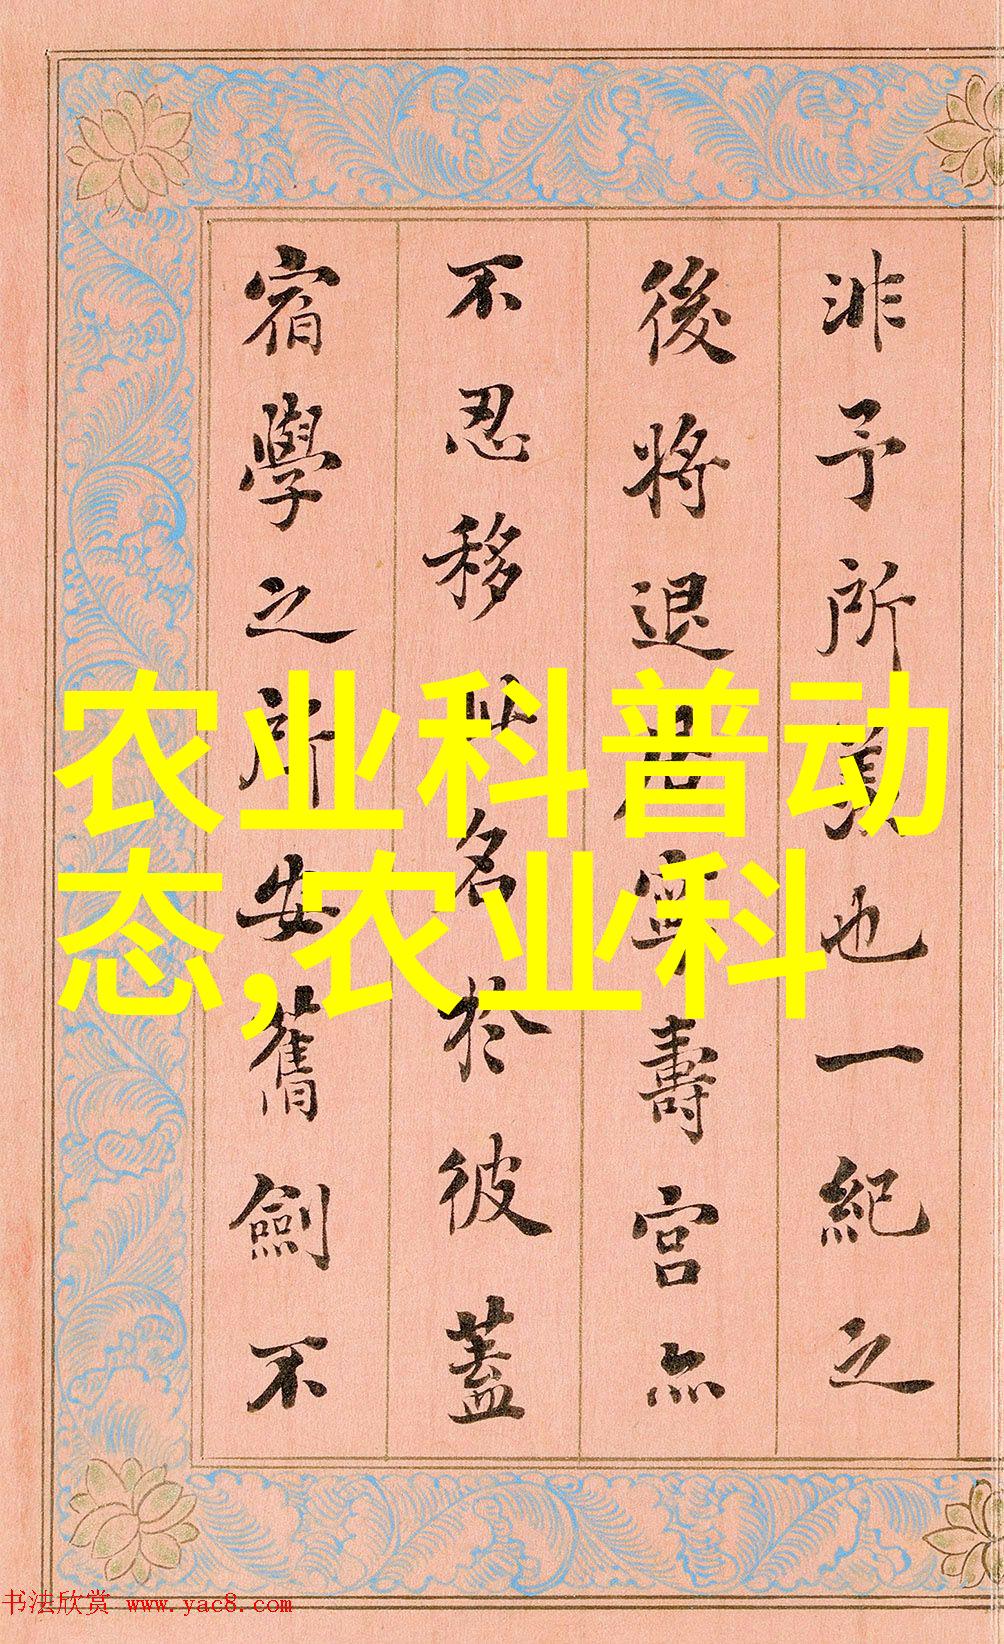 非予所
也一紀之
後將退居寧壽宮亦
不忍移
名於彼蓋
宿學之所安舊劍不
农业科普动
态,农业科
书法欣赏 www.yac8.com